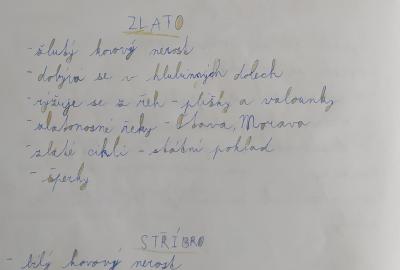 ZLATO
- žlutý kovový nerost
- dobývá se v hlubinných dolech
- rýžuje se z řek - plíšky a valounky
- zlatonosné řeky - Otava, Morava
- zlaté cihli - státní poklad
- šperky
STŘÍBRO
- bílý kovový nerost